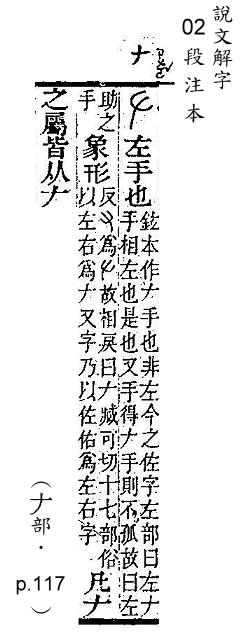 說文解字
02 段注本
𠂇
左手也
鉉本作𠂇手也非左今之佐字左部曰左𠂇
手相左也是也又手得𠂇手則不孤故曰左
助之
手
象形
反又爲𠂇故相戾曰𠂇臧可切十七部俗
以左右爲𠂇又字乃以佐佑爲左右字
凡𠂇
之屬皆从𠂇
(𠂇部.p.117)